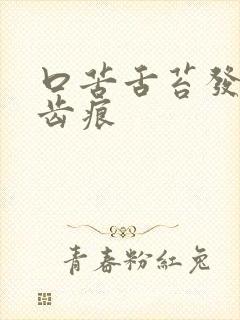 口苦舌苔發
齿痕
青春粉紅兔